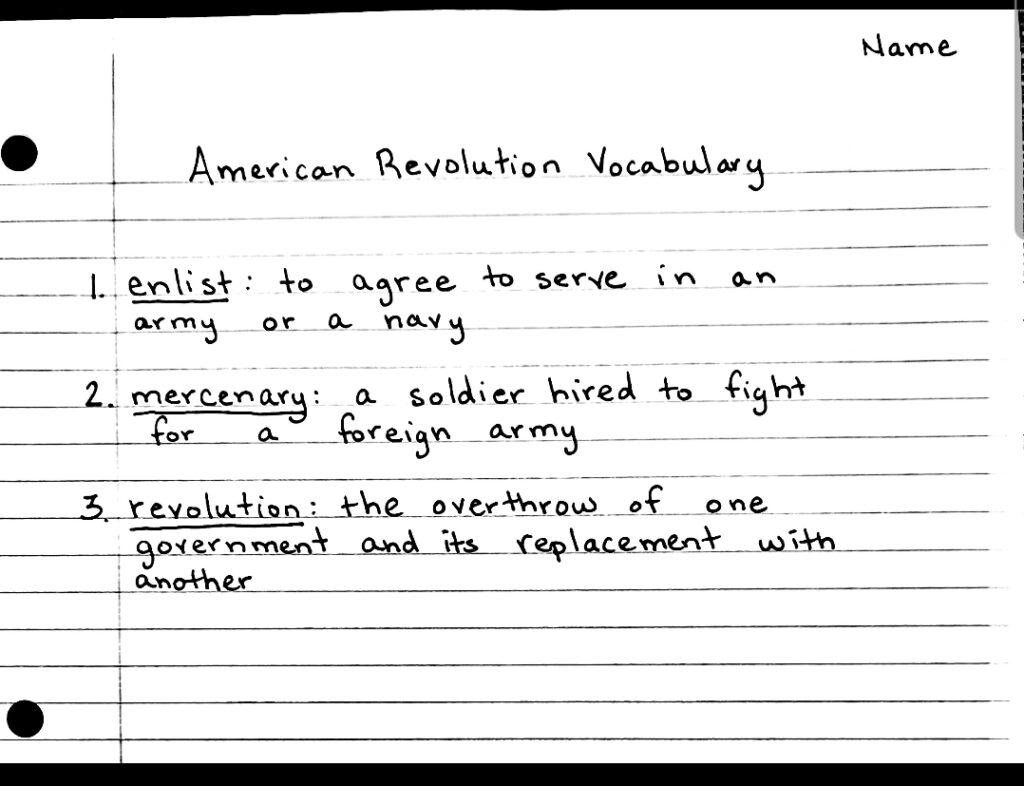 Name
American Revolution Vocabulary
1. enlist: to agree to serve in an
army or a navy
2. mercenary: a soldier hired to fight
for a foreign army
3. revolution: the overthrow of one
government and its replacement with
another